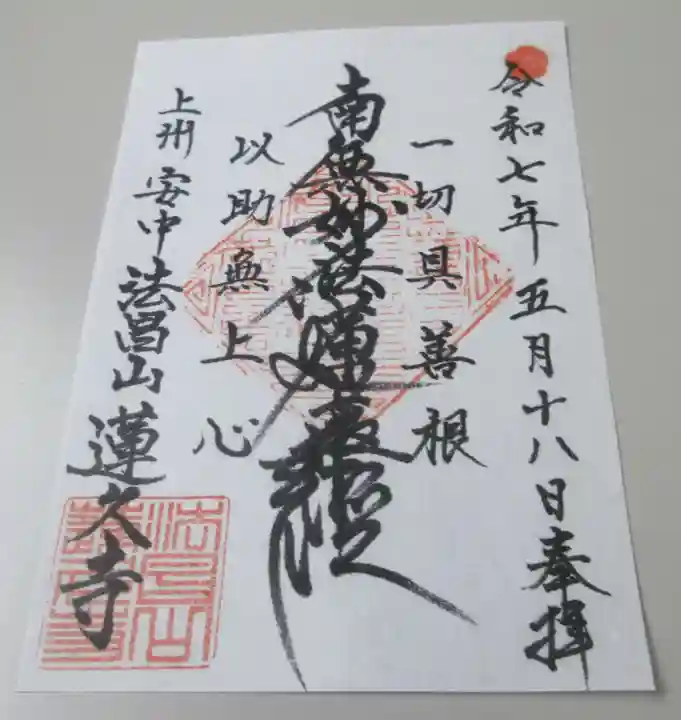 令和七年五月十八日奉拝
一切具善根
南無妙法蓮華経
以助無上心
上州安中法昌山蓮久寺